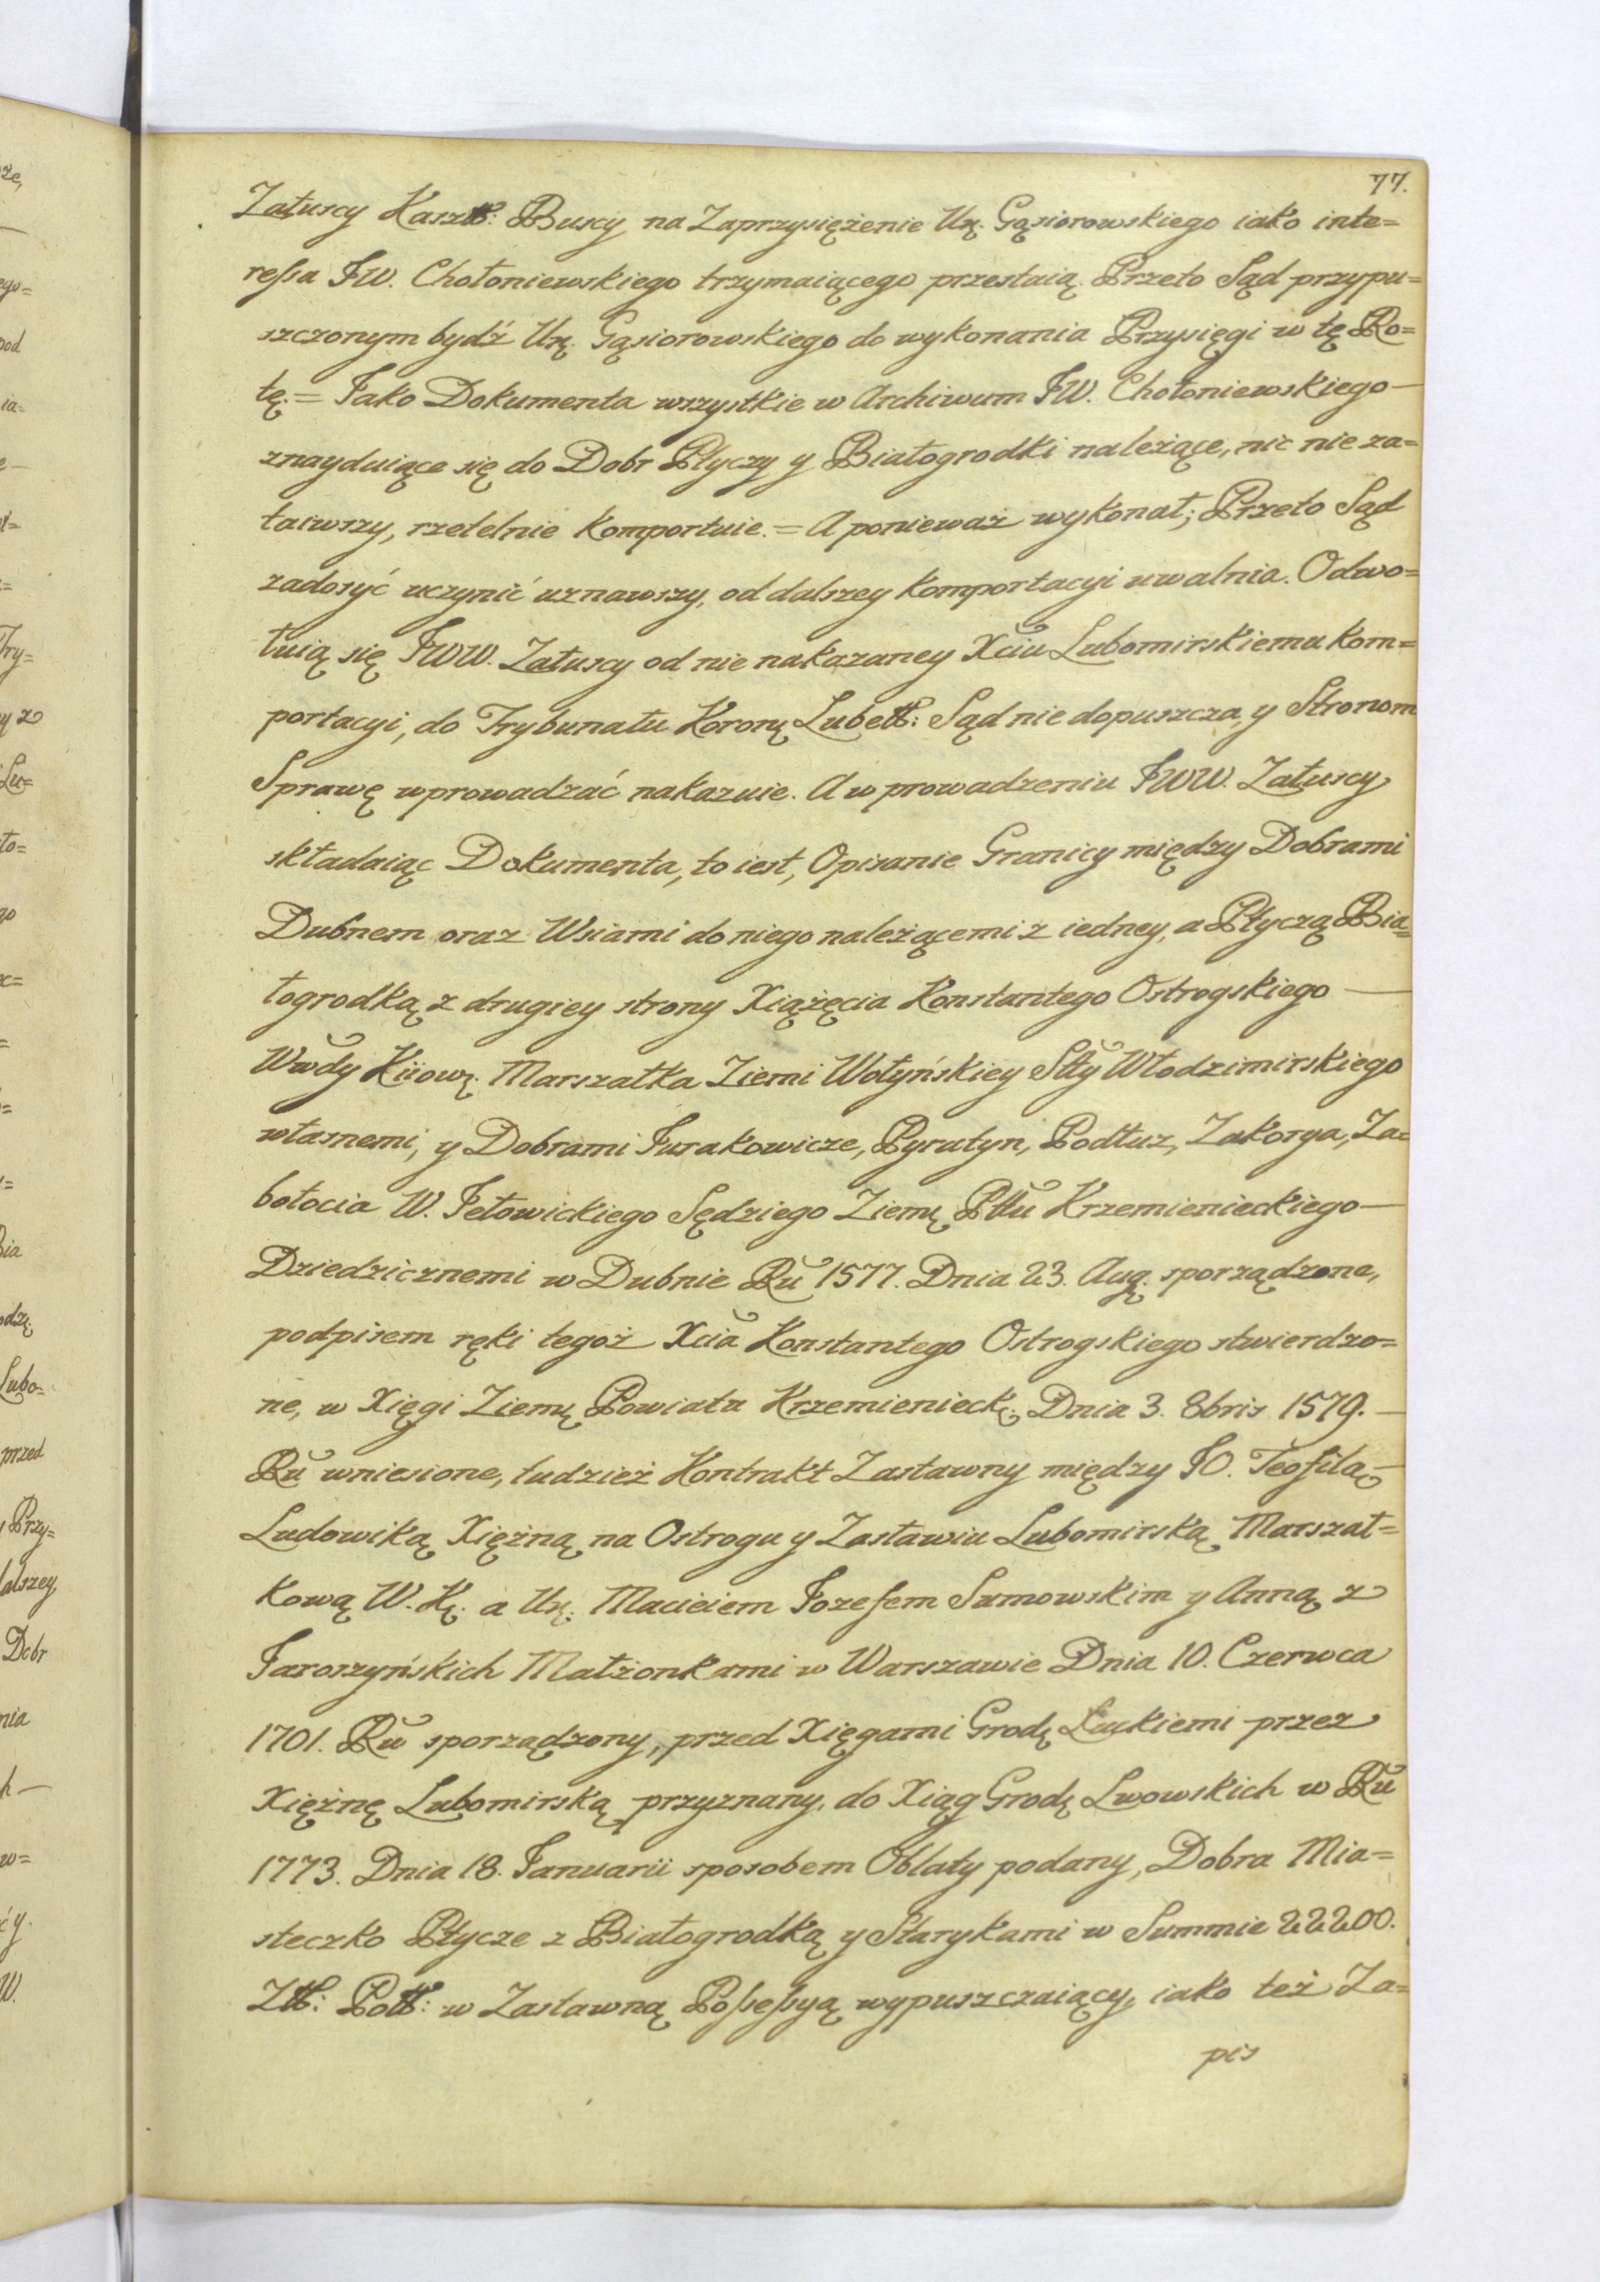 77.
Załuscy Kasztt: Buscy na Zaprzysiężenie Ur. Gąsiorowskiego iako inte=
ressa JW. Chołoniewskiego trzymaiącego przestaią. Przeto Sąd przypu=
szczonym bydź Ur. Gąsiorowskiego do wykonania Przysięgi w tę Ro=
tę. = Jako Dokumenta wszystkie w Archiwum JW. Chołoniewskiego —
znayduiące się do Dobr Płyczy y Białogrodki należące, nic nie za=
taiwszy, rzetelnie komportuie. = A ponieważ wykonał; Przeto Sąd
zadosyć uczynić uznawszy, od dalszey komportacyi uwalnia. Odwo=
łuią się JWW. Załuscy od nie nakazaney Xciu Lubomirskiemu kom=
portacyi, do Trybunału Koron Lubett: Sąd nie dopuszcza, y Stronom
Sprawę wprowadzać nakazuie. A w prowadzeniu JWW. Załuscy
składaiąc Dokumenta, to iest, Opisanie Granicy między Dobrami
Dubnem oraz Wsiami do niego należącemi z iedney, a Płyczą Bia=
łogrodką z drugiey strony Xiążęcia Konstantego Ostrogskiego —
Wwdy Kiiow. Marszałka Ziemi Wołyńskiey Stty Włodzimirskiego
własnemi, y Dobrami Jurakowicze, Pyratyn, Podłuż, Zakorya, Za=
bołocia W. Jełowickiego Sędziego Ziem Pttu Krzemienieckiego —
Dziedzicznemi w Dubnie Ru 1577. Dnia 23. Aug. sporządzone,
podpisem ręki tegoż Xcia Konstantego Ostrogskiego stwierdzo=
ne, w Xięgi Ziem Powiatu Krzemienieck. Dnia 3. 8bris 1579. —
Ru wniesione, tudzież Kontrakt Zastawny między JO. Teofilą —
Ludowiką Xiężną na Ostrogu y Zasławiu Lubomirską Marszał=
kową W. K. a Ur. Macieiem Jozefem Sumowskim y Anną z
Jaroszyńskich Małżonkami w Warszawie Dnia 10. Czerwca
1701. Ru sporządzony, przed Xięgami Grodz Łuckiemi przez
Xiężnę Lubomirską przyznany, do Xiąg Grodz Lwowskich w Ru
1773. Dnia 18. Januarii sposobem Oblaty podany, Dobra Mia=
steczko Płycze z Białogrodką y Starykami w Summie 22200.
Ztt: Pott: w Zastawną Possessyą wypuszczaiący, iako też Za=
pis